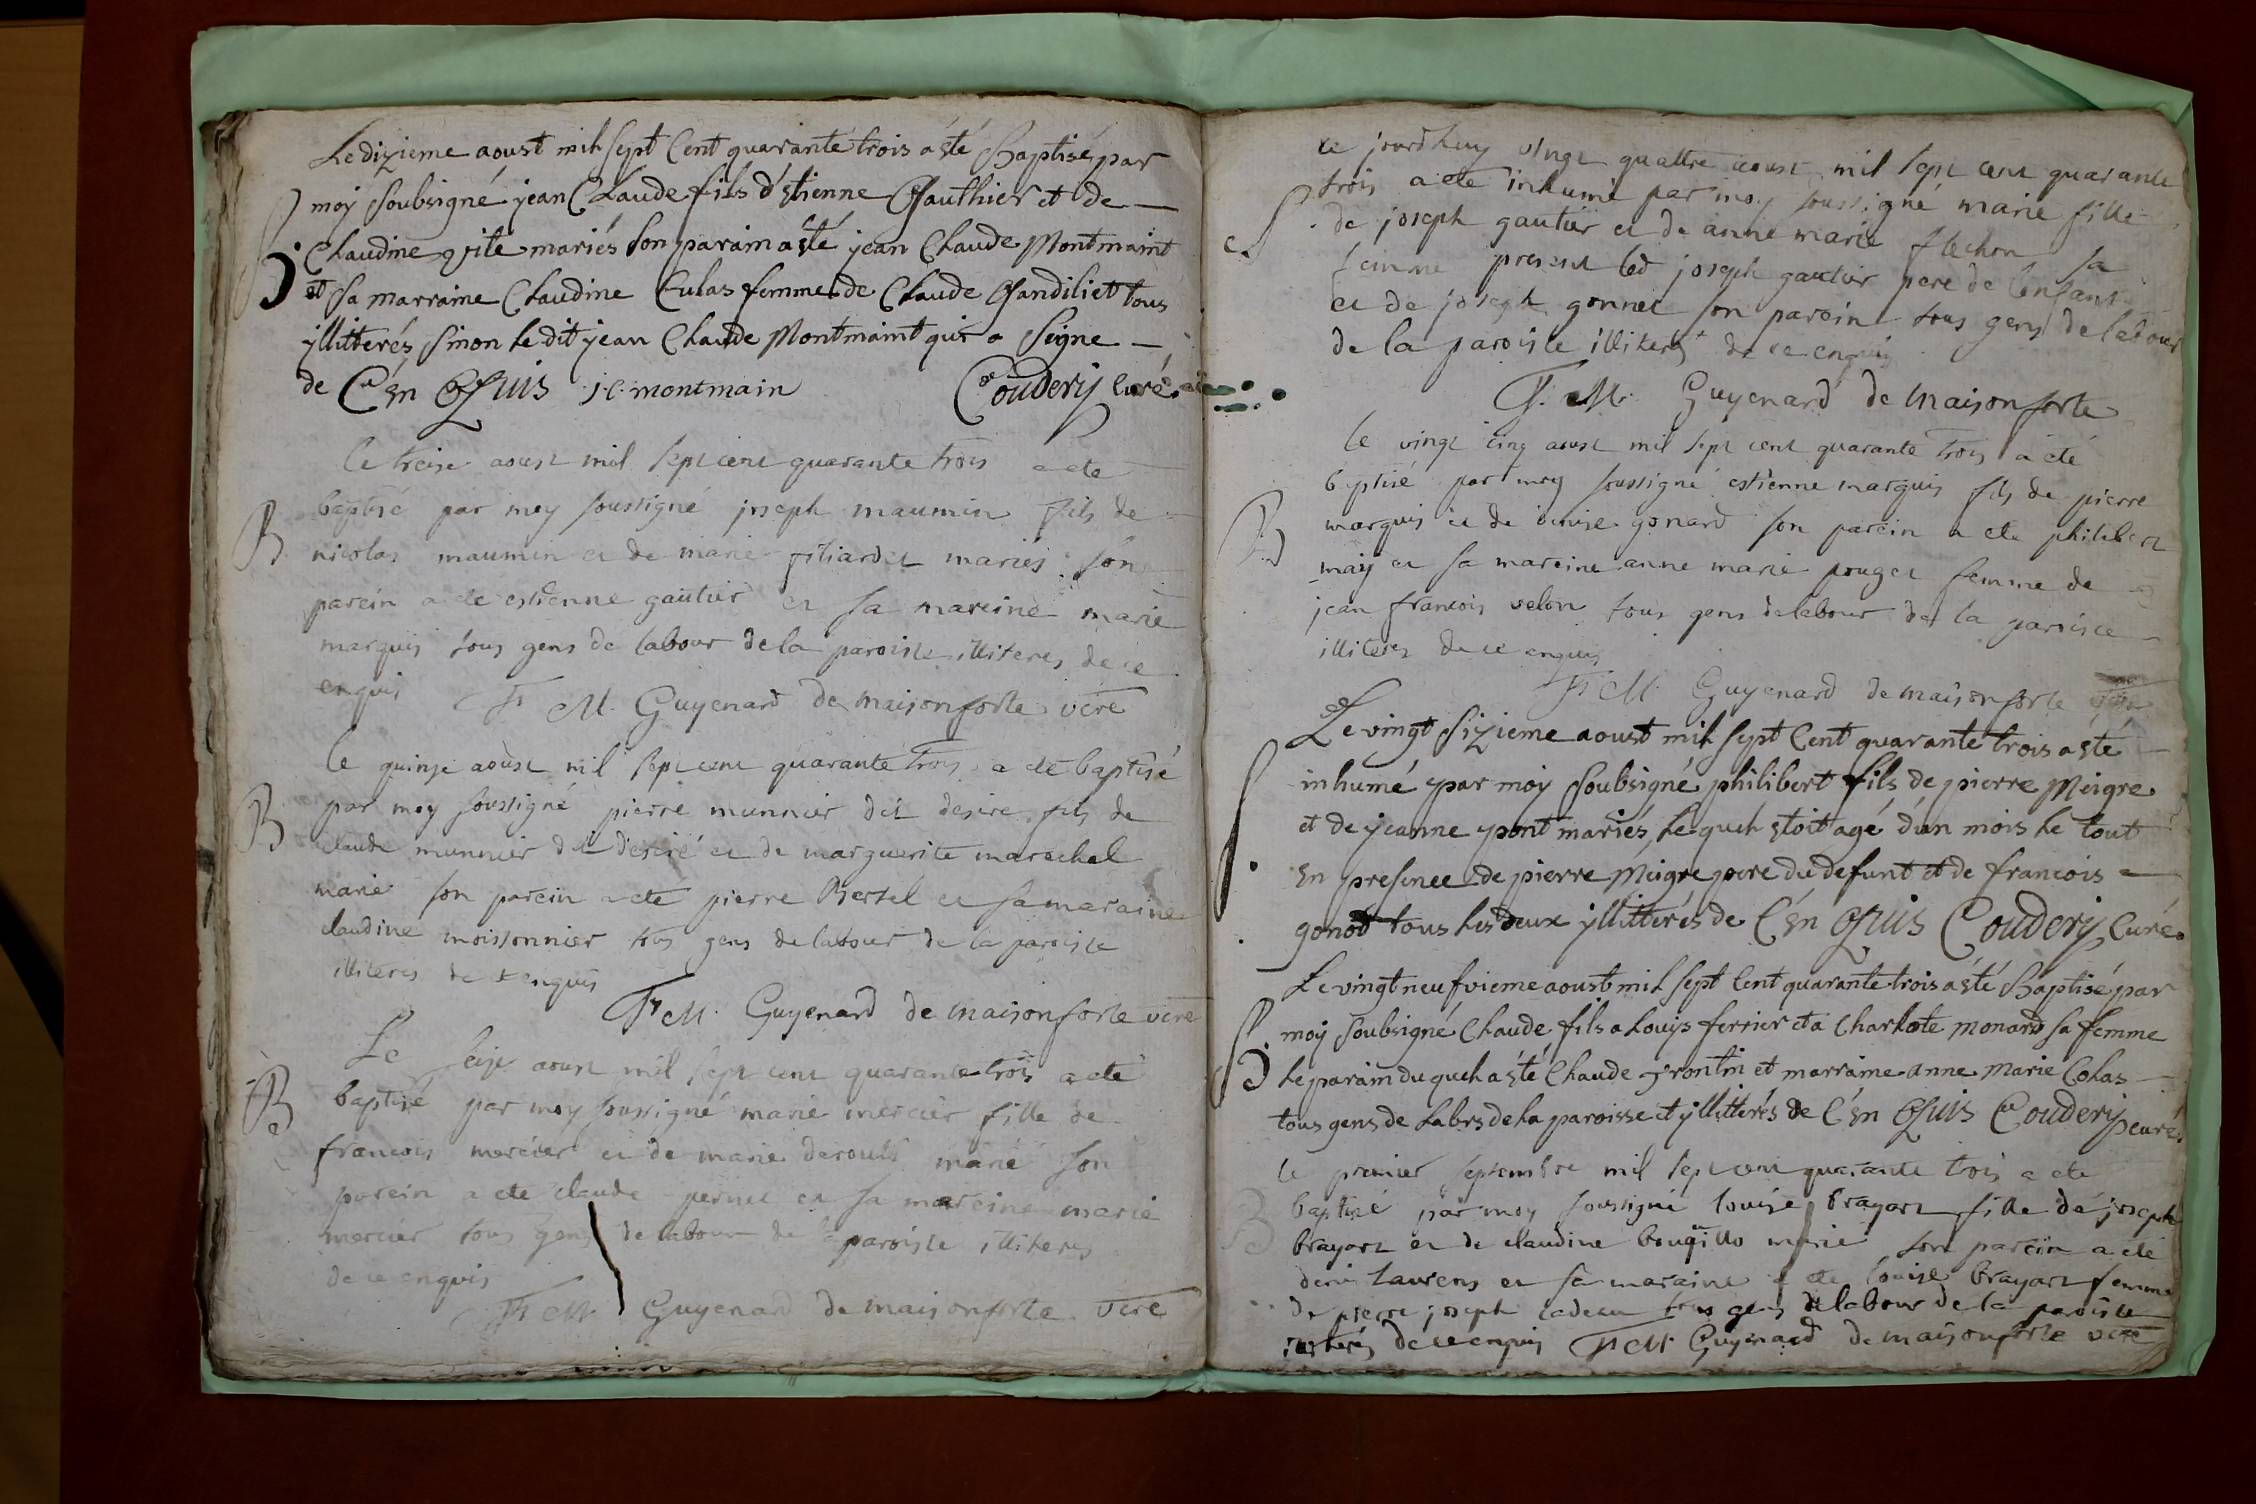 Le dizieme aoust mil sept Cent quarante trois a ésté Baptisé par
moy Soubsigné jean Claude fils d'Estienne Gauthier et de
B Claudine mariés Son parain a ésté jean Claude Montmaint
et Sa marraine Claudine Culas femme de Claude Gandiliet tous
yllitterés Sinon le dit jean Claude Montmaint qui a Signe
de C'En Qfuis J C montmain Coudery Curé
le treise aoust mil sept cent quarante trois a ete
B baptisé par moy soussigné joseph maumin fils de
nicolas maumin et de marie mariés son
parein a ete estienne gautier et sa mareine marie
marquis tous gens de labour de la paroisse illiteres de ce
enquis Fr M. Guyenard de maisonforte vcre
le quinze aoust mil sept cent quarante trois a eté baptisé
B par moy soussigné pierre munnier dit desire fils de
claude munnier dit desiré et de marguerite marechal
marié son parein a ete pierre Bertel et sa maraine
claudine moissonnier tous gens de labour de la paroisse
illiteres de ce enquis
Fr M. Guyenard de maisonforte vcre
Le seize aoust mil sept cent quarante trois a eté
B baptisé par moy soussigné marie mercier fille de
francois mercier et de marie marié son
parein a eté claude pernet et sa mareine marie
mercier tous gens de labour de la paroisse illiteres
de ce enquis
Fr M. Guyenard de maisonforte vcre
ce jourdhuy vingt quattre aoust mil sept cent quarante
trois a eté inhumé par moy soussigné marie fille
S. de joseph gautier et de anne marie flechon sa
femme present led joseph gautier pere de l'enfant
et de joseph gonnet son parein tous gens de labour
de la paroisse illiteres de ce enquis
F. M. Guyenard de maisonforte
le vingt cinq aoust mil sept cent quarante trois a été
baptisé par moy soussigné estienne marquis fils de pierre
B marquis et de gonard son parein a ete philibert
may et sa mareine anne marie pouget femme de
jean francois velon tous gens de labour de la paroisse
illiteres de ce enquis
Fr M. Guyenard de maisonforte
Le vingt Sizieme aoust mil sept Cent quarante trois a ésté
S. inhumé par moy Soubsigné philibert fils de pierre Meigre
et de jeanne pont mariés, le quel Estoit agé d'un mois le tout
En presence de pierre Meigre pere du defunt et de francois
gonod tous les deux yllitterés de C'En Qfuis Coudery Curé
Le vingt neufvieme aoust mil sept Cent quarante trois a ésté Baptisé par
B moy Soubsigné Claude fils a Louys ferrier et a Charlote monard sa femme
le parain du quel a ésté Claude frontin et marraine anne marie Colas
tous gens de Labrs de la paroisse et yllitterés de C'En Qfuis Coudery curé
le premier septembre mil sept cent quarante trois a eté
B baptisé par moy soussigné louise brayart fille de joseph
brayart et de claudine marié son parein a eté
denis laurens et sa maraine a ete louise brayart femme
de pierre joseph cadeau tous gens de labour de la paroisse
de ce enquis Fr M Guyenard de maisonforte vcre